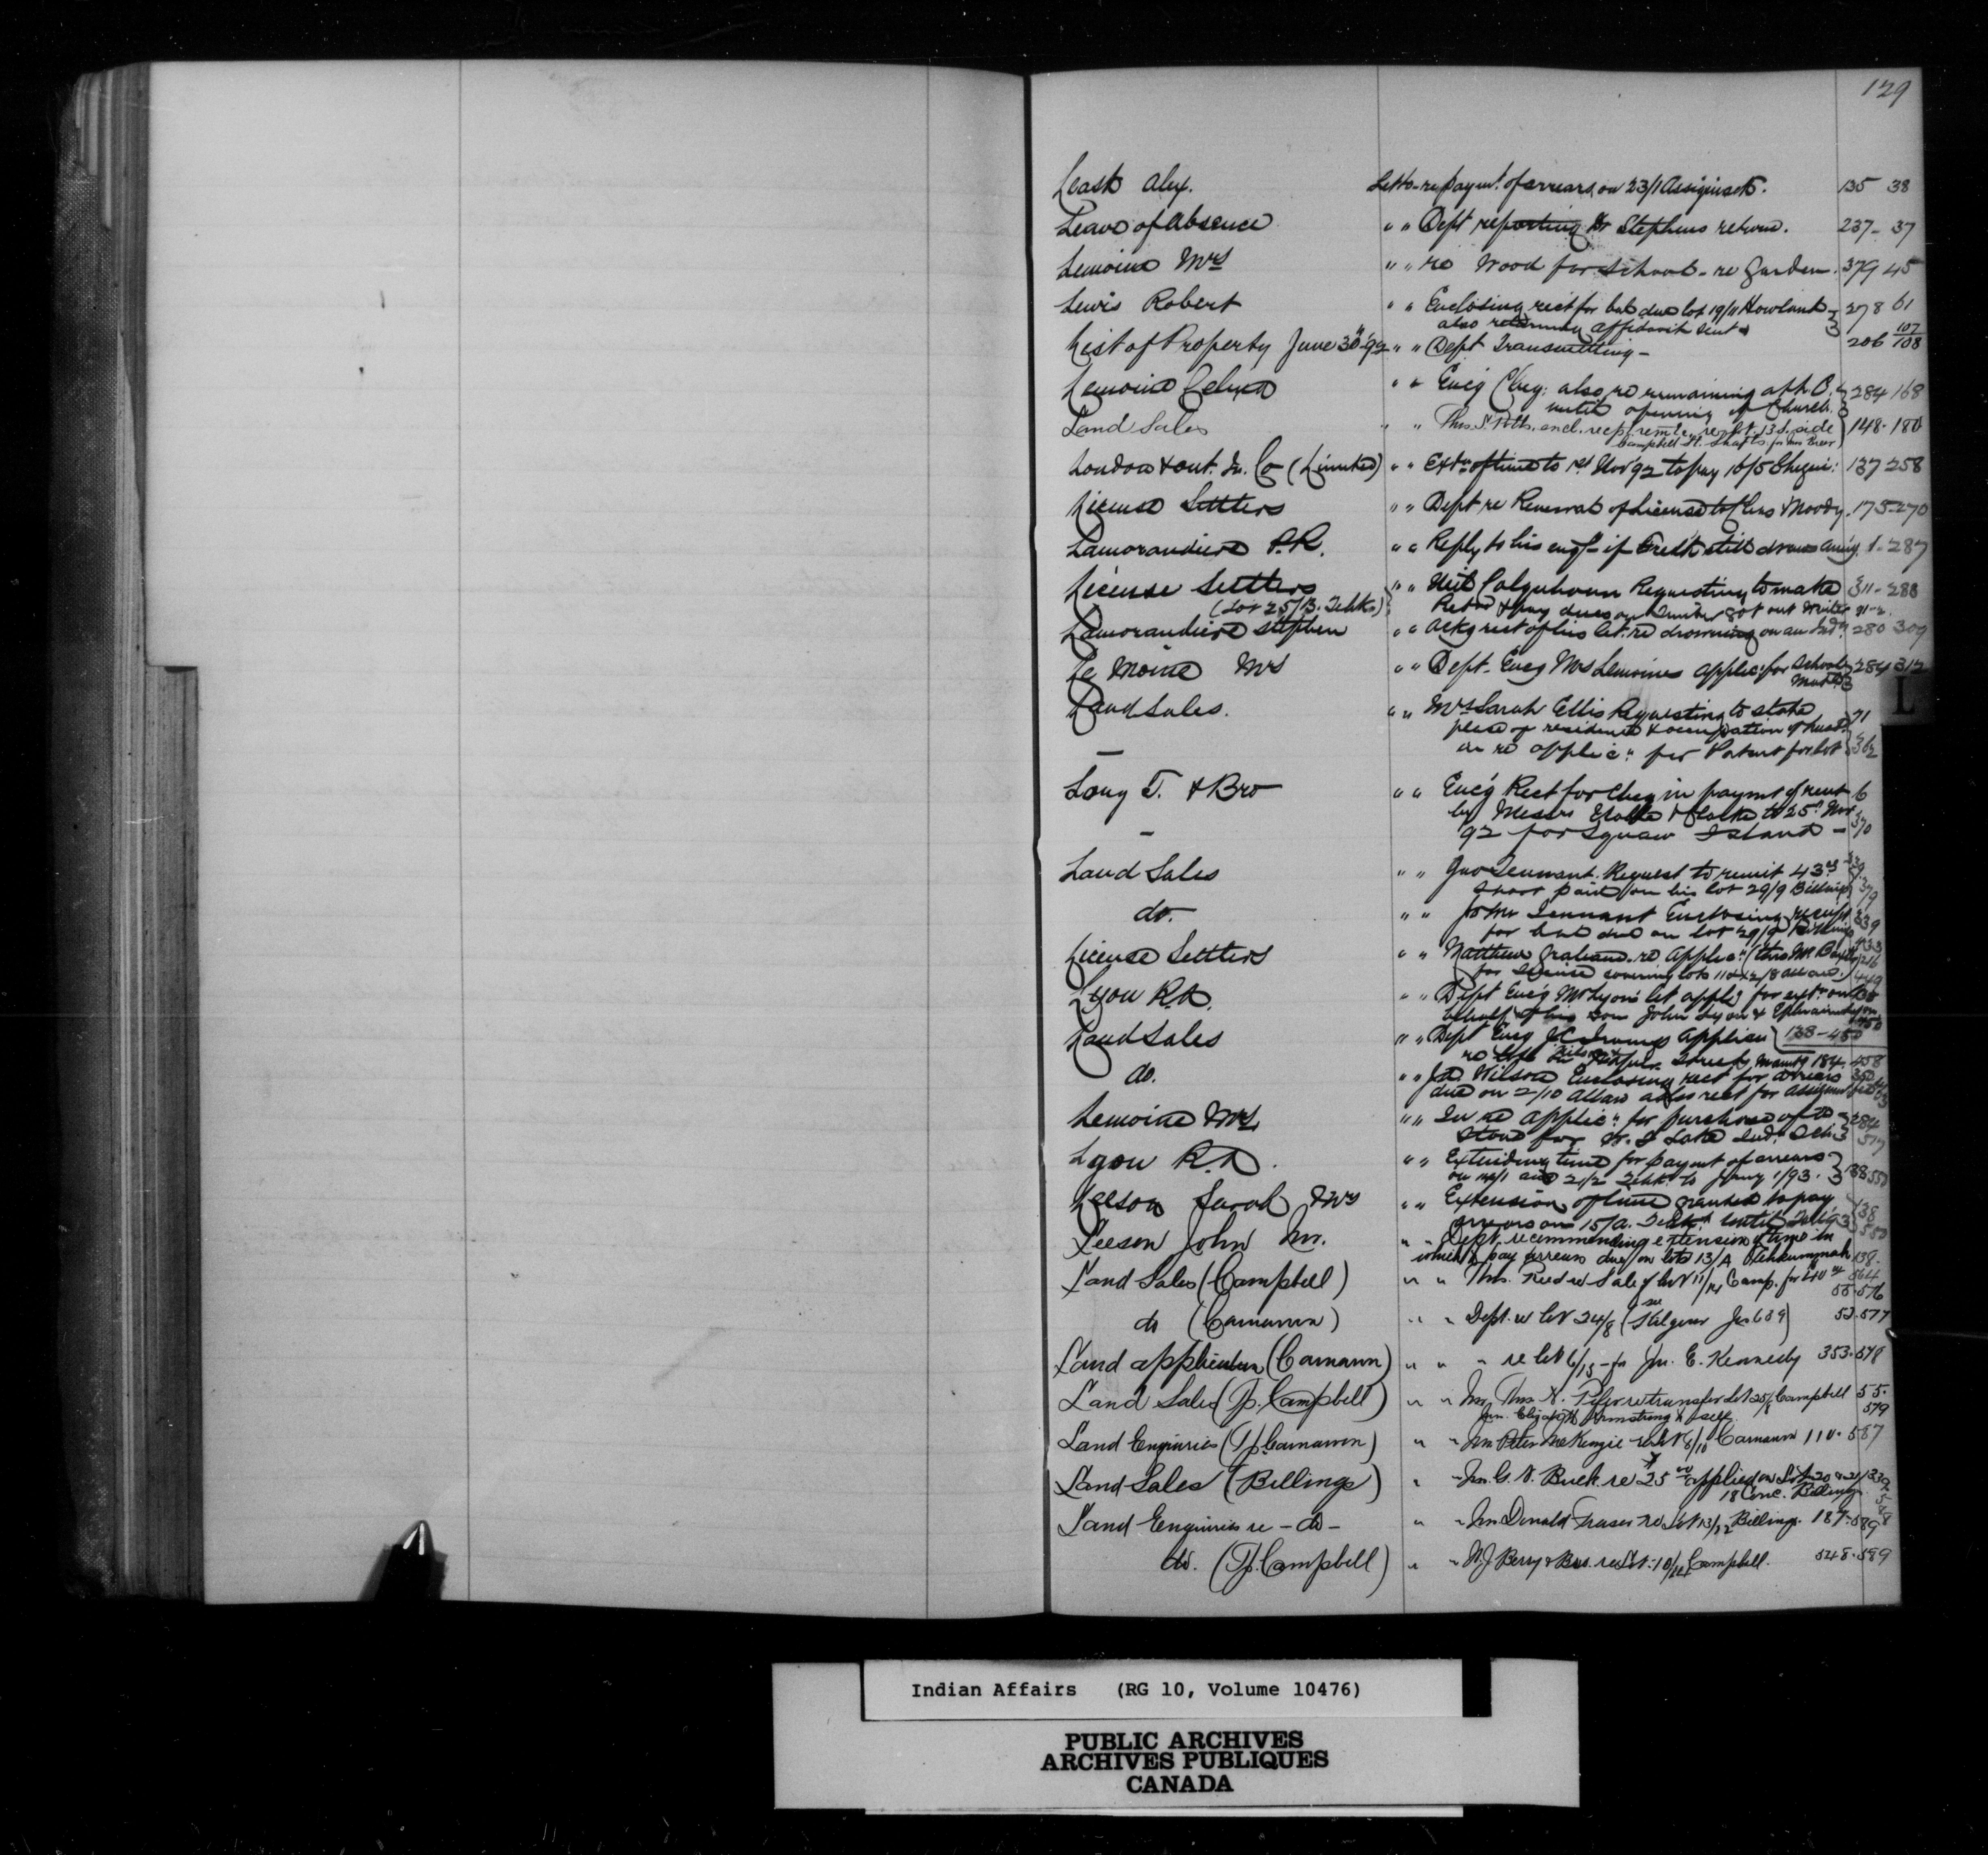 129
Leask Alex. Let to re paymt. of arrears on 23/1 Assiginack. 135 38
Leave of Absence " " Dept reporting Dr Stephens return. 237 - 37
Lemoine Mrs " " re Wood for School - re Garden. 379 45
Lewis Robert " " Enclosing rect for bal due lot 19/11 Howland 278 61
also returning affidavit sent
List of Property June 30" 92 " " Dept Transmitting - 206 107/108
Lemoine " " Enc'g Cheq: also re remaining at 284 168
until opening of Church.
Land Sales " " Thos. S. encl. recpt. remtce. re lot 13 S. side 148 - 180
Campbell St. for
London & Ont. In. Co (Limited) " " Extn of time to 1st Nov 92 to pay 16/5 137 258
License Settlers " " Dept re Renewal of License to Chas Moody. 175 - 270
Lamorandiere P.R. " " Reply to his enqy - if still draws 1 - 287
License Settlers " " Colquhoun Requesting to make 311 - 288
(Lot 25/B. Tehk.) & pay dues on timber got out Winter 91-2.
Lamorandiere Stephen " " Ackg rect of his let. re drowning on an Indn 280 309
Le Moine Mrs " " Dept - Encg Mrs Lemoines applicn for School 284 312
L
Land Sales. " " Mrs Sarah Ellis Requesting to state 71
place of residence & occupation of
in re applicn for Patent for lot 362
Long T. & Bro " " Enc'g Rect for Cheq in paymt of rent 6
by Messrs & to 25th Nov
92 for Squaw Island - 370
Land Sales " " Jno Tennant. Request to remit 43
short paid on his lot 29/9 Billings 379
do. " " John Tennant Enclosing receipt 339
for bal due on lot 29/9 Billings 433
License Settlers " " Matthew Graham re Applicn 216
for License covering lots 11 & 12/8 Allan 449
Lyon R.A. " " Dept Enc'g Mr Lyon's let applg for extn on 138
behalf of his son John Lyon & Ephraim Lyon 450
Land Sales " " Dept Encg Irving's Applicn 138 - 450
re Streets 184 - 458
do. " " Wilson Enclosing rect for arrears 350
due on 2/10 Allan also rect for Assignmt fee
Lemoine Mrs " " In re applicn for purchase of 284
Stove for Lake Ind. Sch 517
Lyon R.A. " " Extending time for paymt of arrears 138 550
on and 21/2 Tehk. to Jany 1/93.
Leeson Sarah Mrs " " Extension of time granted to pay 138
arrears on 15/A. Tehk. until 550
Leeson John Mr. " " Dept. recommending extension of time in
which to pay arrears due on lots 13/A Tehkummah 138.
564
Land Sales (Campbell) " " Thos. Reed re Sale of lot 11/14 Camp. for 40 55 . 576
do (Carnarvon) " " Dept. re lot 24/8 53 . 577
Land application (Carnarvon) " " " re lot 6/15 - for Jn. E. Kennedy 353 . 578
Land Sales (Tp. Campbell) " " Mr. Thos. re transfer Lot 25/8 Campbell 55 .
Elizabeth Armstrong & self. 579
Land Enquiries (Tp. Carnarvon) " " Mr Peter McKenzie re lot 8/10 Carnarvon 110 . 587
Land Sales (Billings) " " Mr. G. Buck re 25 00 applied on Lots 20 & 21 339
18 Conc. Billings 588
Land Enquiries re - do - " " Mr Donald Fraser re Lot 13/12 Billings. 187 . 589
do. (Tp. Campbell) " " Berry & Bro. re Lot 10/11 Campbell. 548 . 589
Indian Affairs (RG 10, Volume 10476)
PUBLIC ARCHIVES
ARCHIVES PUBLIQUES
CANADA